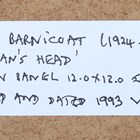 BARNICOAT (1924-
AN'S HEAD'
N PANEL 12.0 X 12.0
D AND DATED 1993